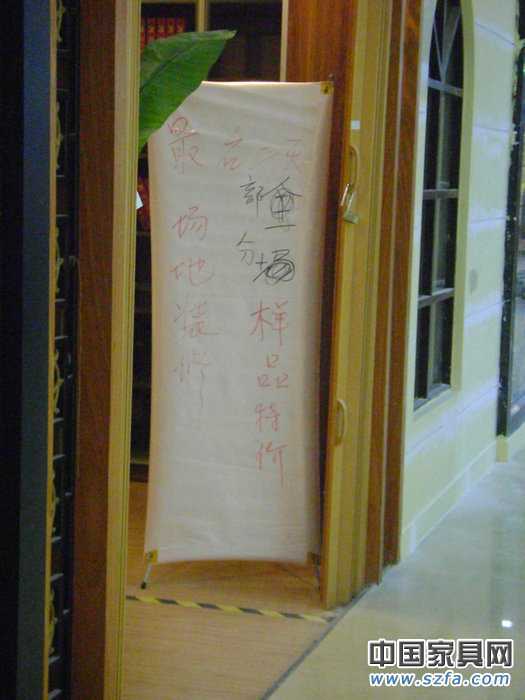 最后一天
场地装修
部分
全场样品特价
中国家具网
www.szfa.com